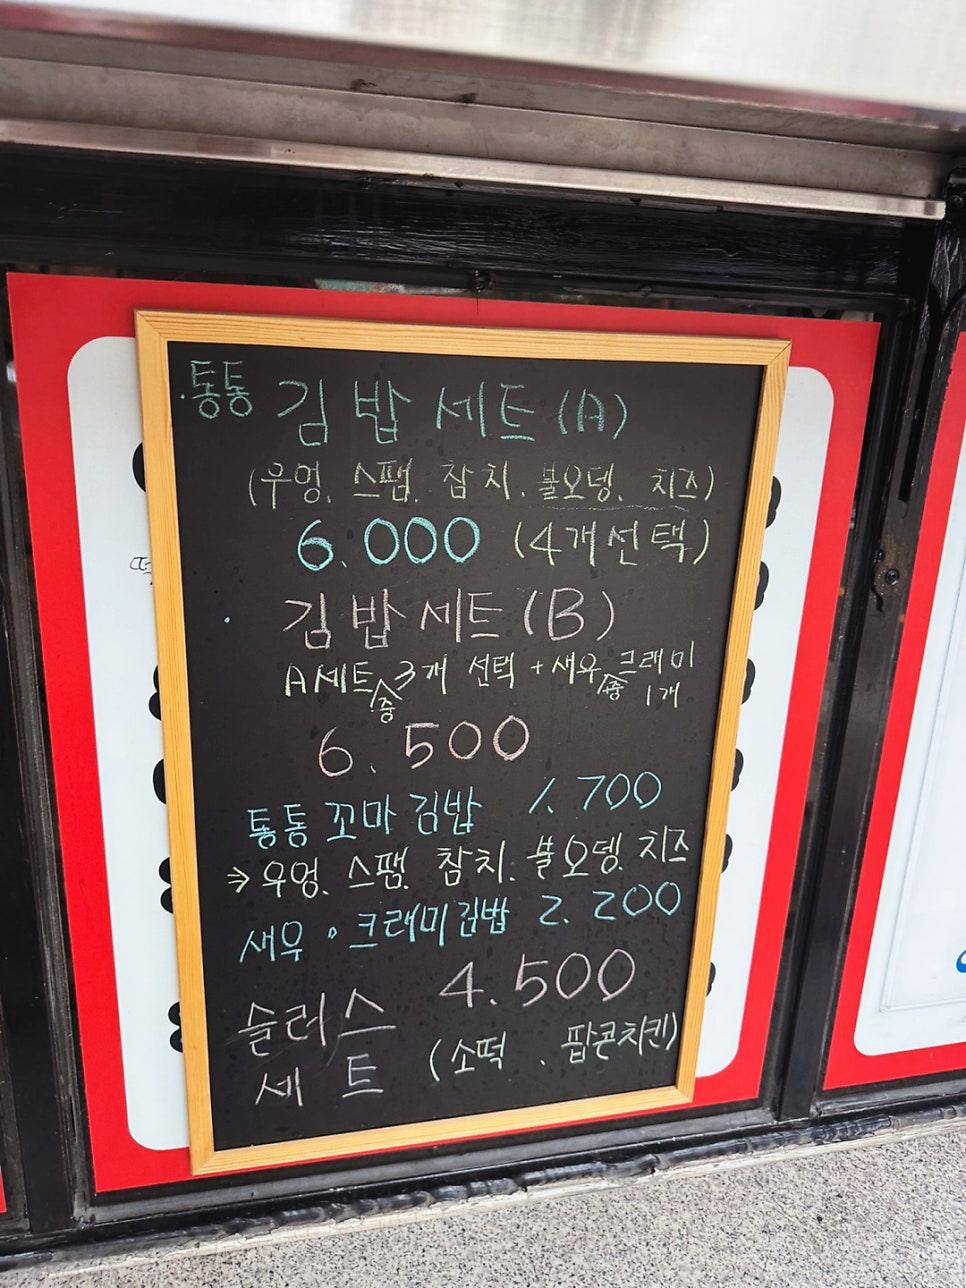 통통 김밥세트(A)
(우엉. 스팸. 참치. 불오뎅. 치즈)
6.000 (4개선택)
김밥세트(B)
A세트 중 3개 선택 + 새우 크래미 중 1개
6.500
통통 꼬마김밥 1.700
→ 우엉. 스팸. 참치. 불오뎅. 치즈
새우 · 크래미김밥 2.200
슬러스 세트 4.500
(소떡 . 팝콘치킨)
떡